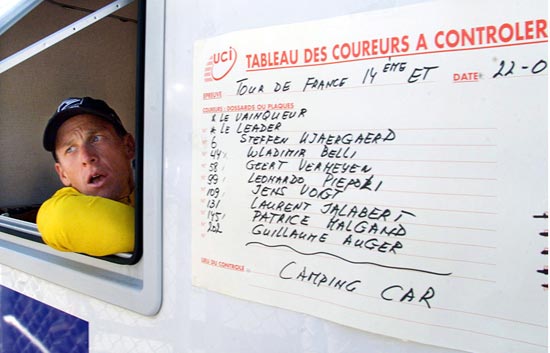 uci TABLEAU DES COUREURS A CONTROLER
EPREUVE TOUR DE FRANCE 14ÈME ET DATE 22-0
COUREURS: DOSSARDS OU PLAQUES
* LE VAINQUEUR
* LE LEADER
6 STEFFEN KJAERGAERD
44 WLADIMIR BELLI
58 GEERT VERHEYEN
99 LEONARDO PIEPOLI
109 JENS VOIGT
131 LAURENT JALABERT
145 PATRICE HALGAND
202 GUILLAUME AUGER
LIEU DU CONTROLE
CAMPING CAR